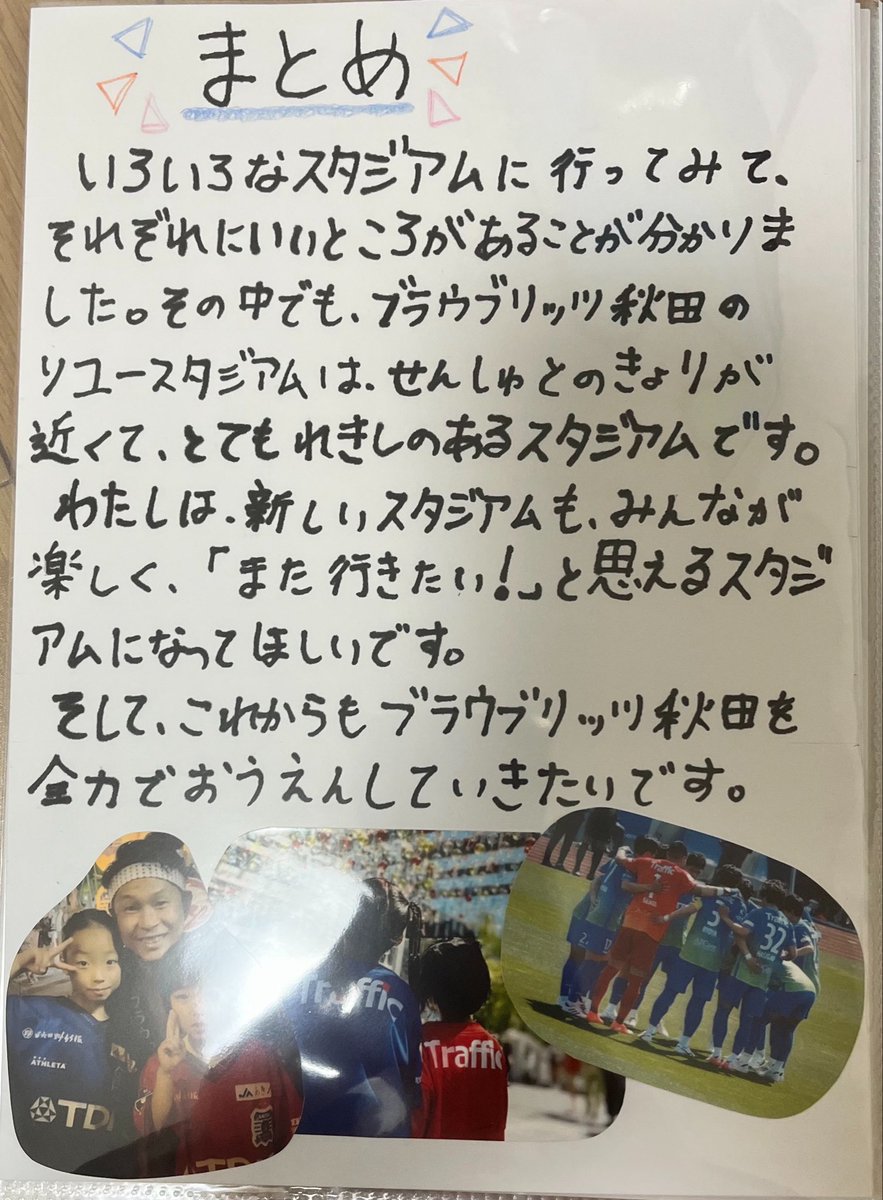 まとめ
いろいろなスタジアムに行ってみて、
それぞれにいいところがあることが分かりま
した。その中でも、ブラウブリッツ秋田の
ソユースタジアムは、せんしゅとのきょりが
近くて、とてもれきしのあるスタジアムです。
わたしは、新しいスタジアムも、みんなが
楽しく、「また行きたい!」と思えるスタジ
アムになってほしいです。
そして、これからもブラウブリッツ秋田を
全力でおうえんしていきたいです。
Traffic
Traffic
ATHLETA
TDK
JA
Traffic
1
2
5
32